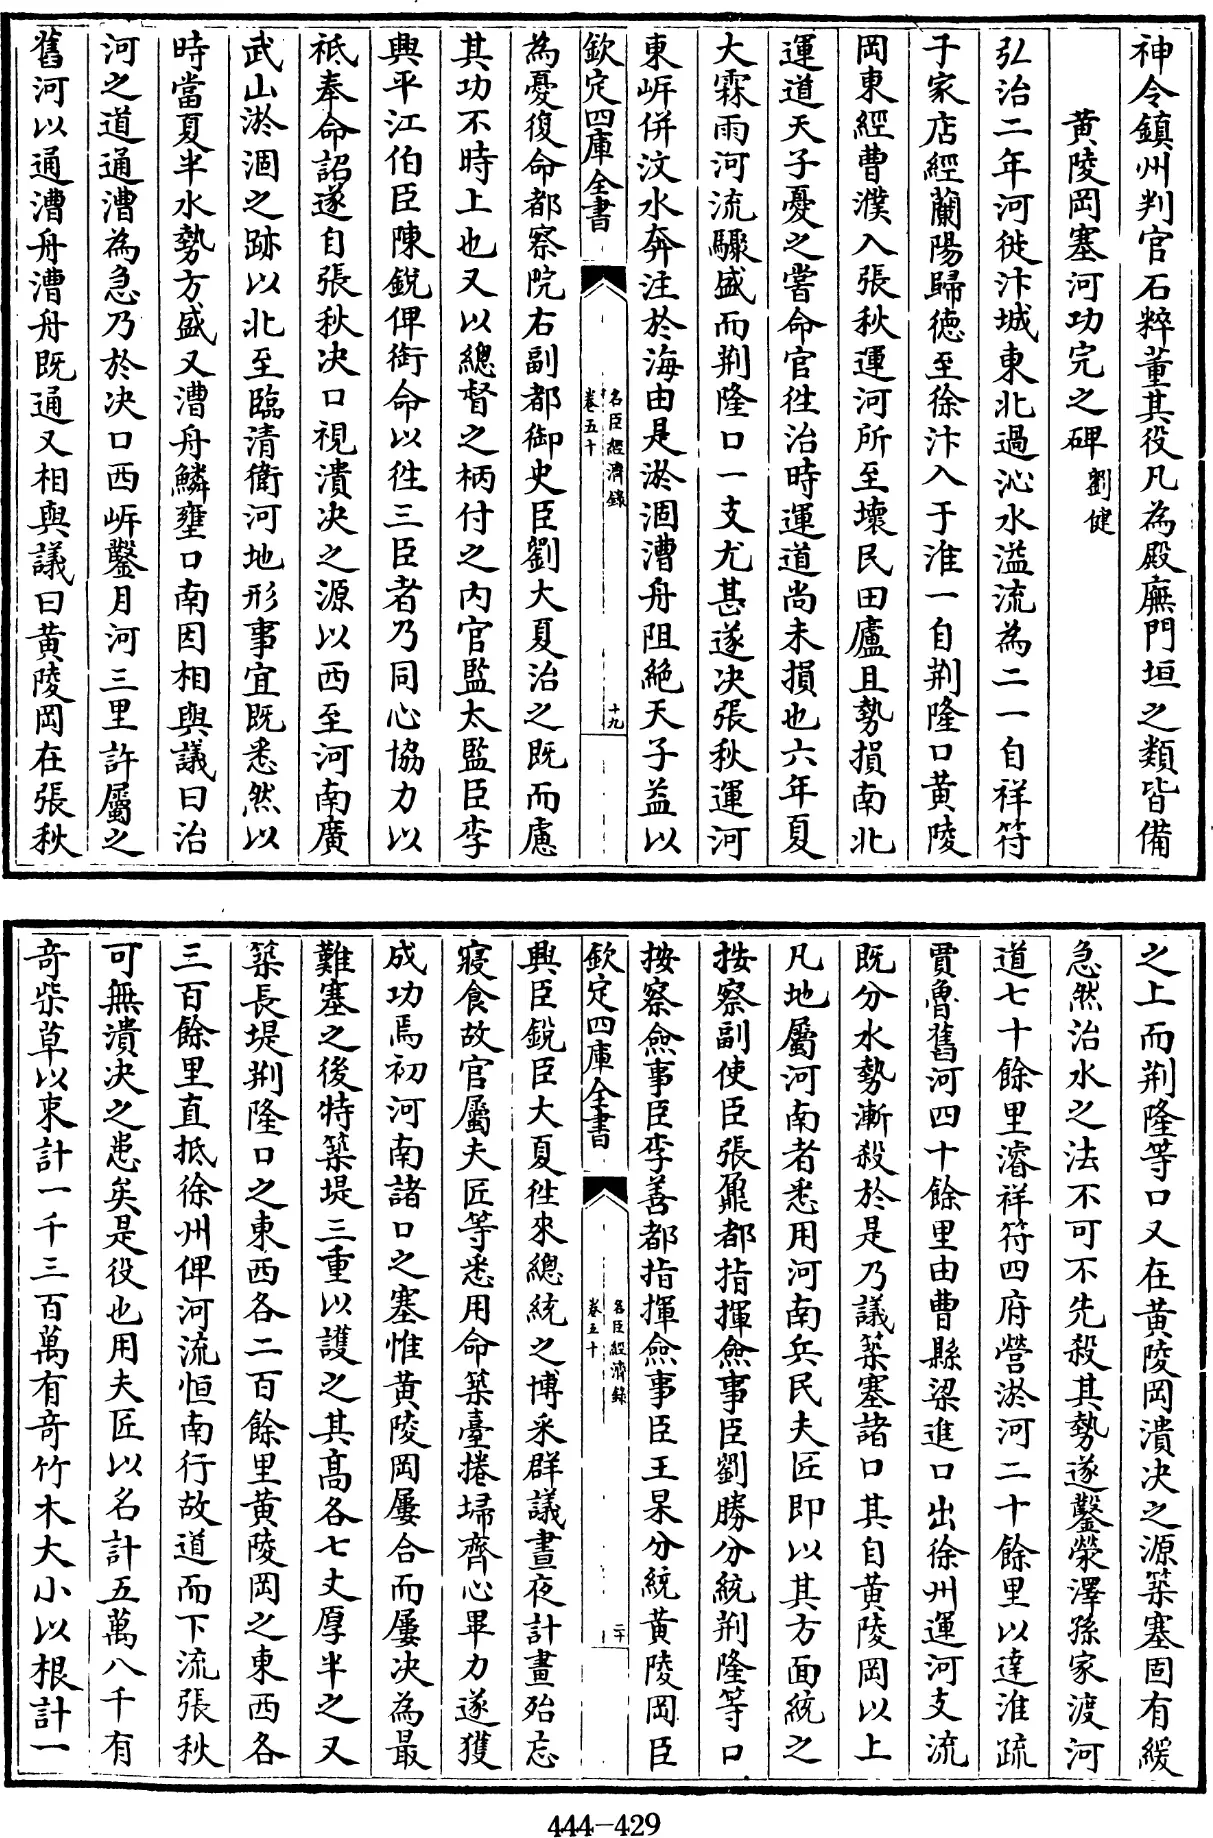 神令鎮州判官石粹董其役凡為殿廡門垣之類皆備
黄陵岡塞河功完之碑 劉健
弘治二年河徙汴城東北過沁水溢流為二一自祥符
于家店經蘭陽歸德至徐汴入于淮一自荆隆口黄陵
岡東經曹濮入張秋運河所至壞民田廬且勢損南北
運道天子憂之嘗命官徃治時運道尚未損也六年夏
大霖雨河流驟盛而荆隆口一支尤甚遂决張秋運河
東岍併汶水奔注於海由是淤涸漕舟阻絶天子益以
欽定四庫全書
名臣經濟録
卷五十
十九
為憂復命都察院右副都御史臣劉大夏治之既而慮
其功不時上也又以總督之柄付之内官監太監臣李
興平江伯臣陳鋭俾銜命以徃三臣者乃同心協力以
祗奉命詔遂自張秋决口視潰决之源以西至河南廣
武山淤涸之跡以北至臨清衛河地形事宜既悉然以
時當夏半水勢方盛又漕舟鱗壅口南因相與議曰治
河之道通漕為急乃於决口西岍鑿月河三里許屬之
舊河以通漕舟漕舟既通又相與議曰黄陵岡在張秋
之上而荆隆等口又在黄陵岡潰决之源築塞固有緩
急然治水之法不可不先殺其勢遂鑿滎澤孫家渡河
道七十餘里濬祥符四府營淤河二十餘里以達淮疏
賈魯舊河四十餘里由曹縣梁進口出徐州運河支流
既分水勢漸殺於是乃議築塞諸口其自黄陵岡以上
凡地屬河南者悉用河南兵民夫匠即以其方面統之
按察副使臣張鼐都指揮僉事臣劉勝分統荆隆等口
按察僉事臣李善都指揮僉事臣王杲分統黄陵岡臣
欽定四庫全書
名臣經濟録
卷五十
二十
興臣鋭臣大夏徃來總統之博采群議晝夜計畫殆忘
寢食故官屬夫匠等悉用命築臺捲埽齊心畢力遂獲
成功焉初河南諸口之塞惟黄陵岡屢合而屢决為最
難塞之後特築堤三重以護之其高各七丈厚半之又
築長堤荆隆口之東西各二百餘里黄陵岡之東西各
三百餘里直抵徐州俾河流恒南行故道而下流張秋
可無潰决之患矣是役也用夫匠以名計五萬八千有
竒柴草以束計一千三百萬有竒竹木大小以根計一
444-429